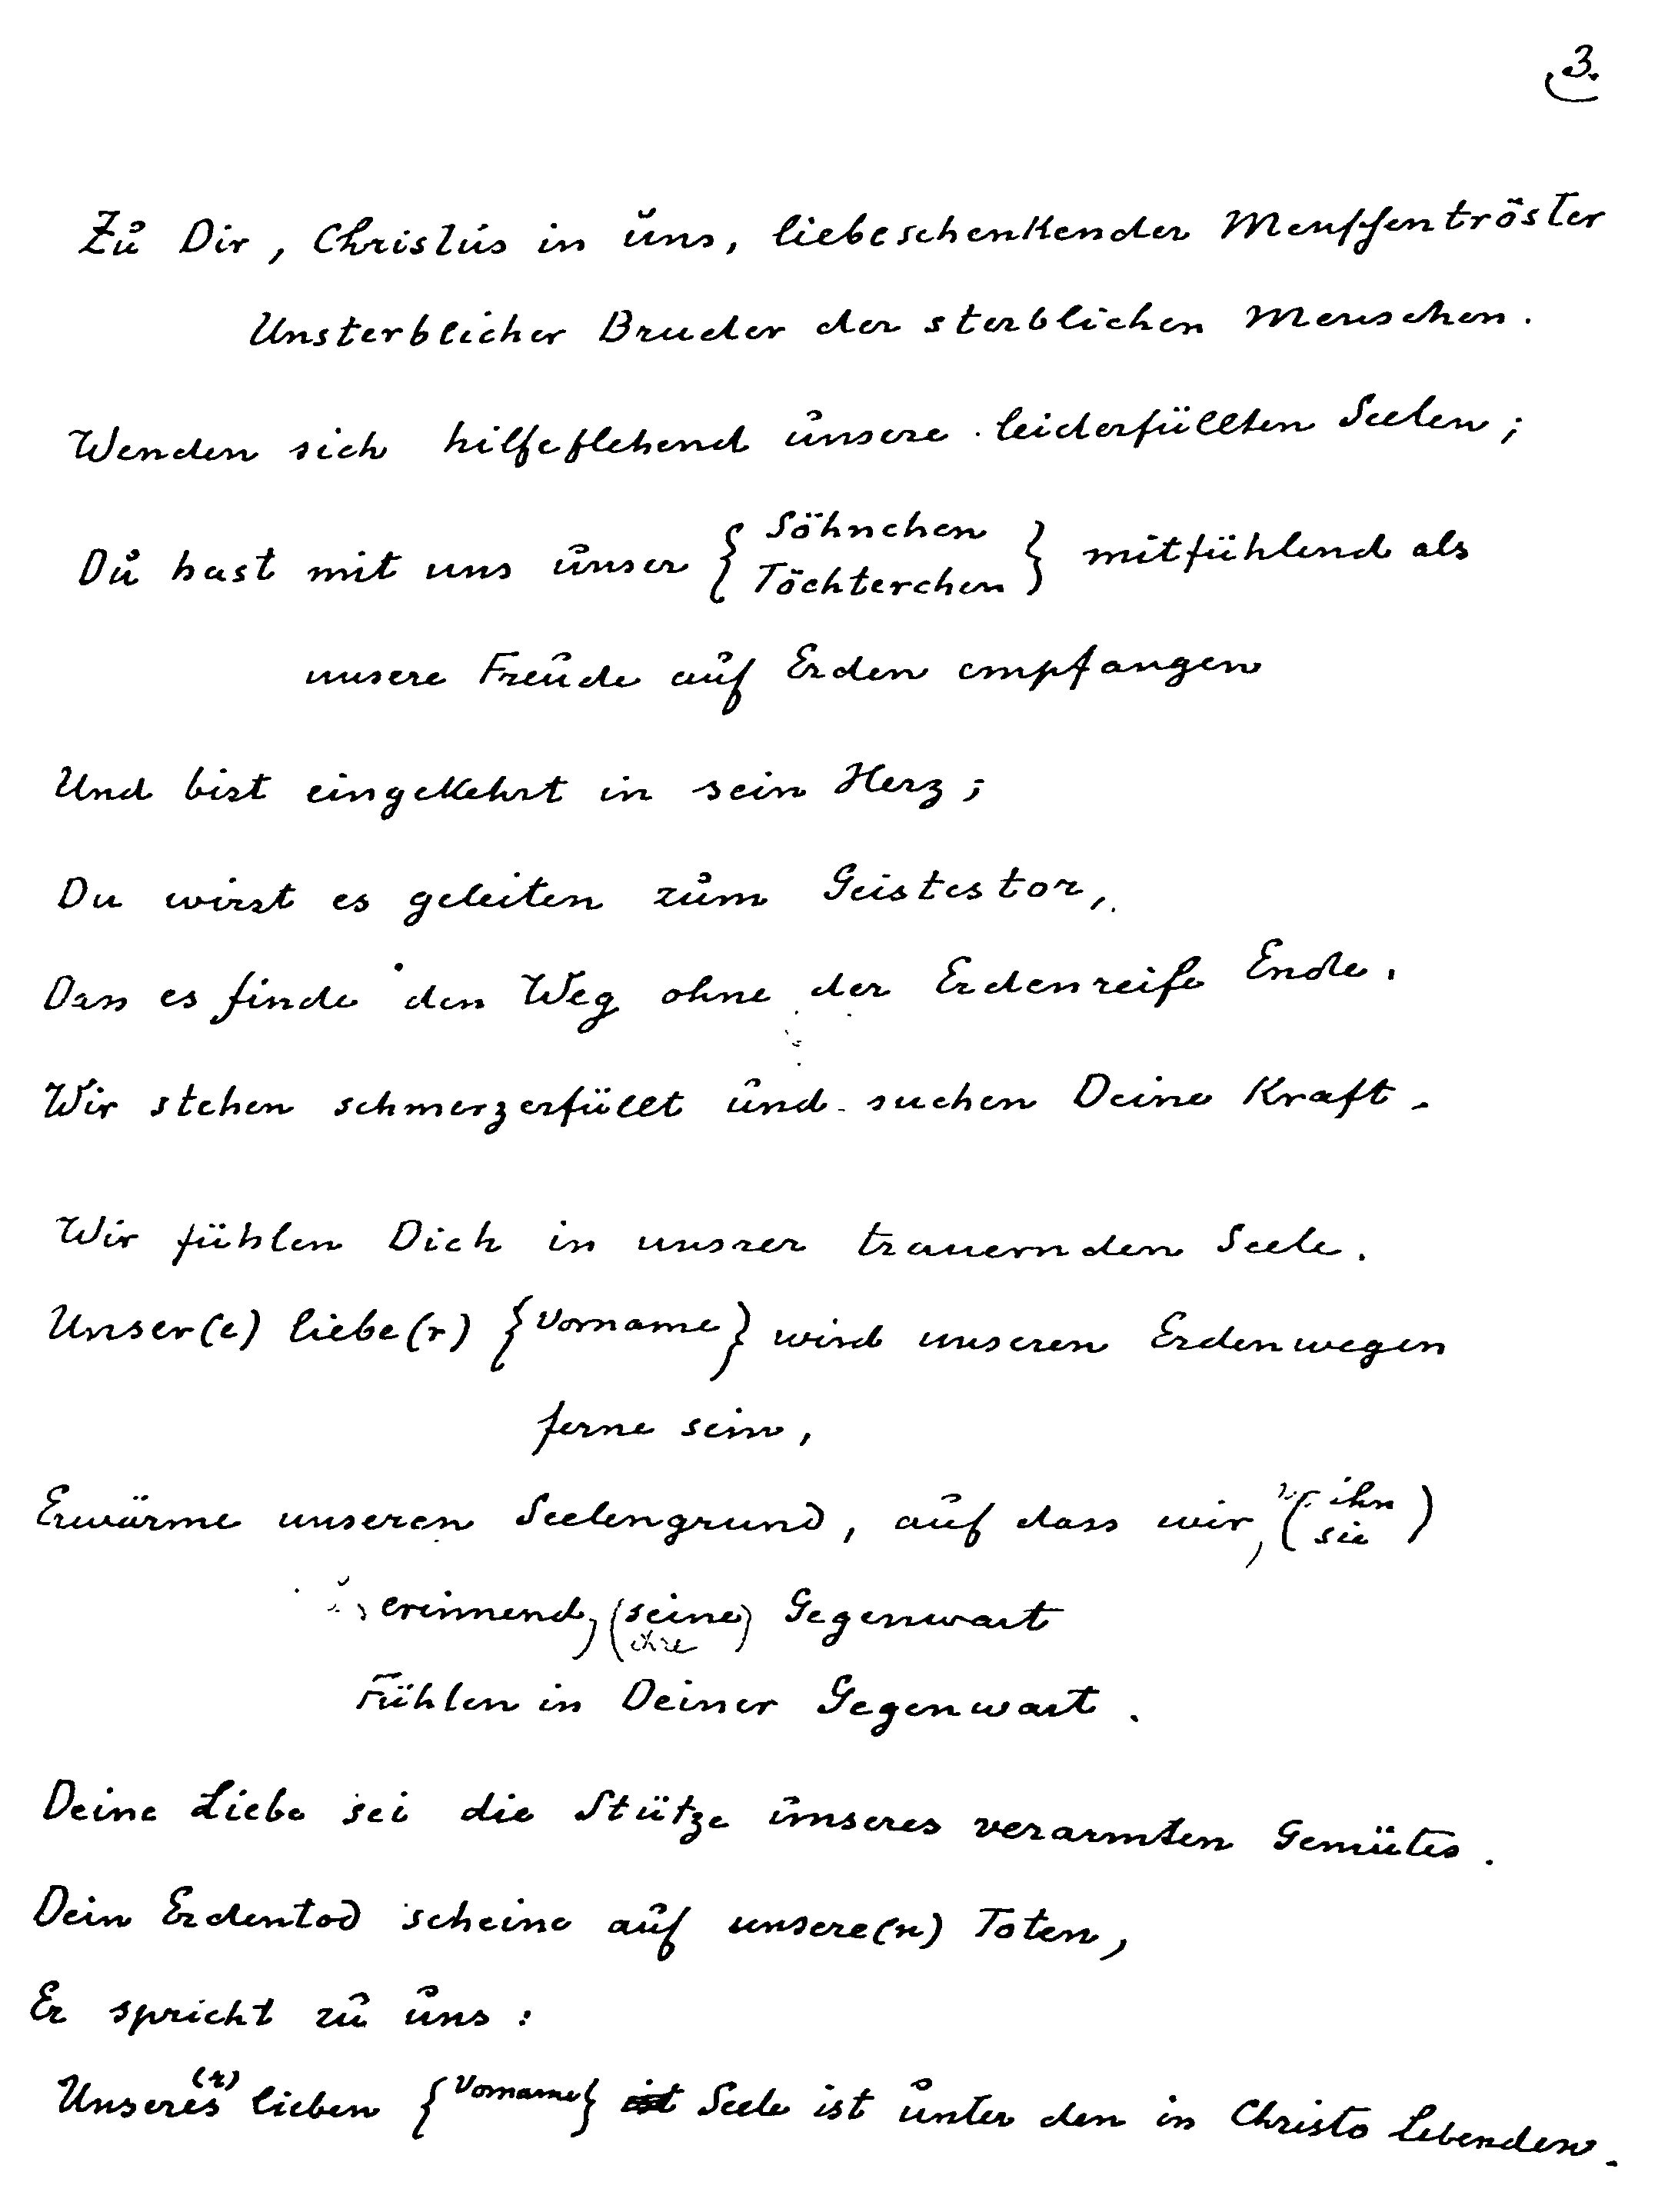 3.
Zu Dir, Christus in uns, liebeschenkender Menschentröster
Unsterblicher Bruder der sterblichen Menschen.
Wenden sich hilfeflehend unsere leiderfüllten Seelen;
Du hast mit uns unser { Söhnchen
Töchterchen } mitfühlend als
unsere Freude auf Erden empfangen
Und bist eingekehrt in sein Herz;
Du wirst es geleiten zum Geistestor,
Dass es finde den Weg ohne der Erdenreife Ende.
Wir stehen schmerzerfüllt und suchen Deine Kraft.
Wir fühlen Dich in unsrer trauernden Seele.
Unser(e) liebe(r) {Vorname} wird unseren Erdenwegen
ferne sein,
Erwärme unseren Seelengrund, auf dass wir, ( ihn
sie )
erinnend, (seine) Gegenwart
ihre
Fühlen in Deiner Gegenwart.
Deine Liebe sei die Stütze unseres verarmten Gemütes.
Dein Erdentod scheine auf unsere(n) Toten,
Er spricht zu uns:
Unseres (r) lieben {Vorname} ist Seele ist unter den in Christo Lebenden.